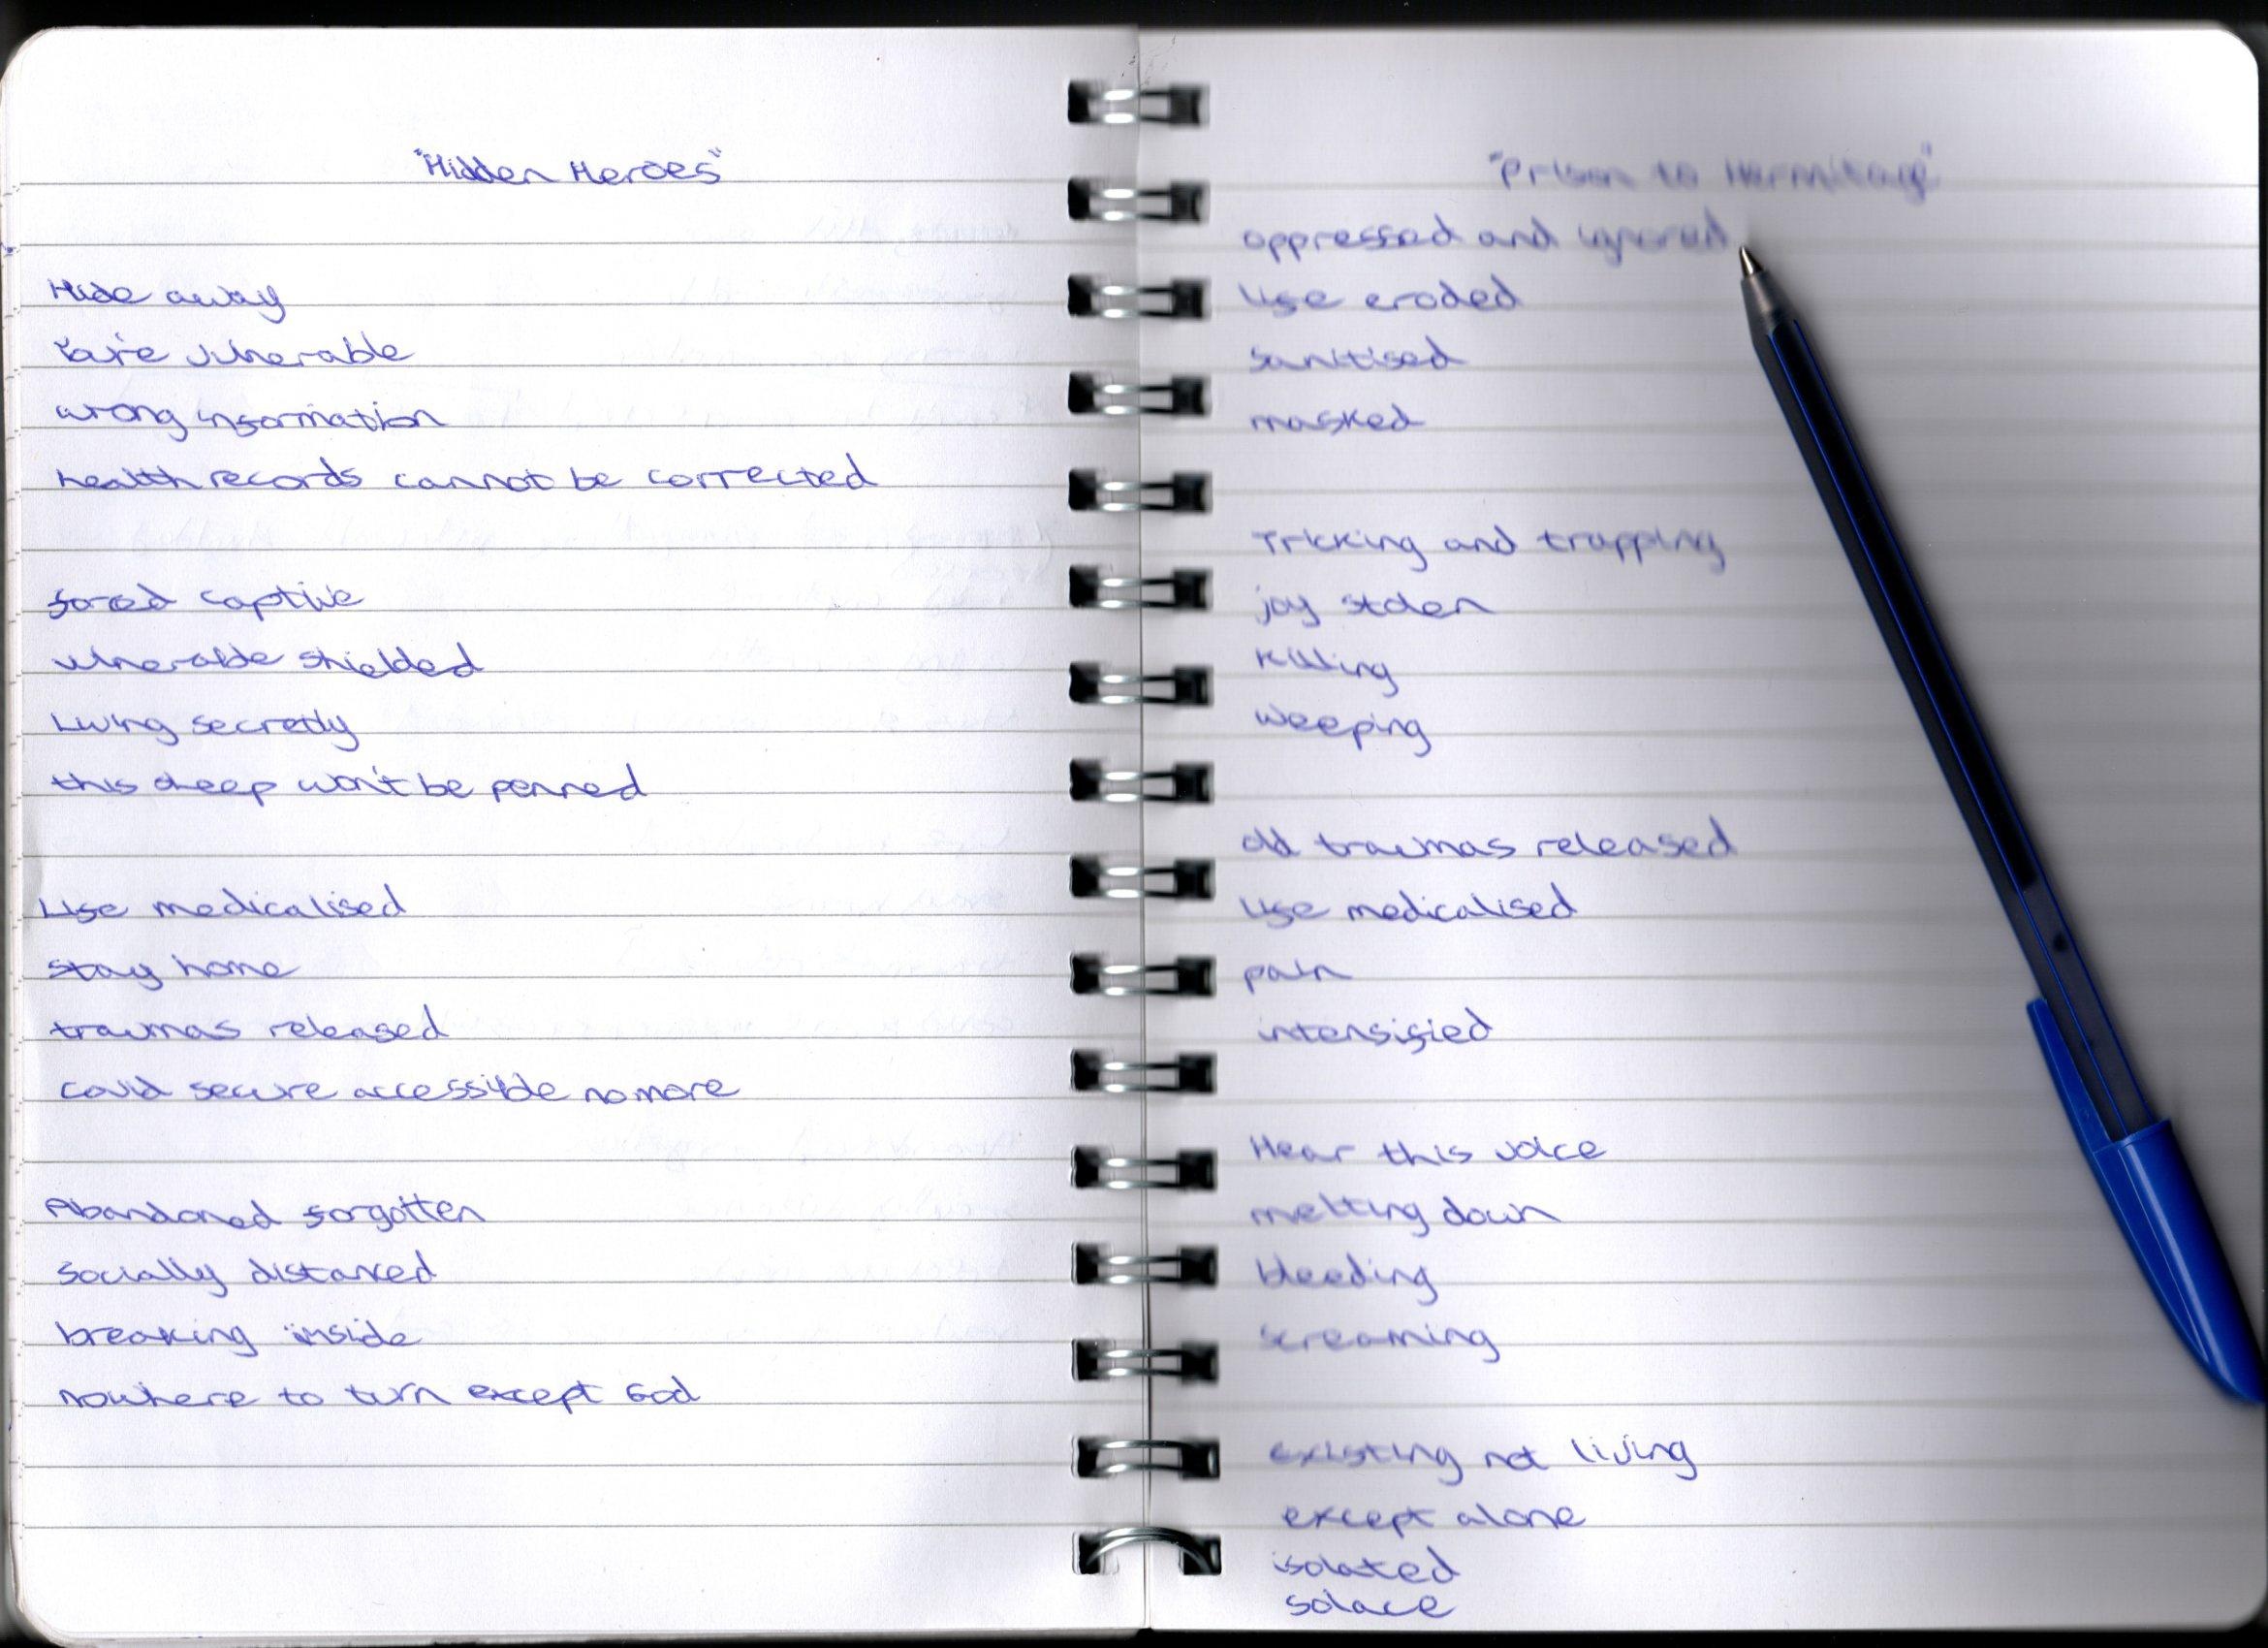 "Hidden Heroes"
Hide away
You're vulnerable
wrong information
health records cannot be corrected
forced captive
vulnerable shielded
Living secretly
this sheep won't be penned
Life medicalised
stay home
traumas released
covid secure accessible no more
Abandoned forgotten
Socially distanced
breaking inside
nowhere to turn except God
"Prison to Hermitage"
oppressed and ignored
Life eroded
Sanitised
masked
Tricking and trapping
joy stolen
Killing
Weeping
old traumas released
Life medicalised
pain
intensified
Hear this voice
melting down
bleeding
screaming
existing not living
except alone
isolated
solace